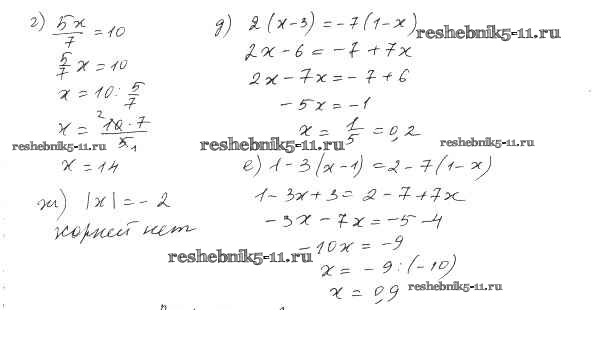 г) 5x/7 = 10
5/7 x = 10
x = 10 : 5/7
x = 10 · 7 / 5
x = 14
ж) |x| = - 2
корней нет
д) 2(x-3) = -7(1-x)
2x - 6 = -7 + 7x
2x - 7x = -7 + 6
-5x = -1
x = 1/5 = 0,2
е) 1-3(x-1) = 2-7(1-x)
1-3x+3 = 2-7+7x
-3x-7x = -5-4
-10x = -9
x = -9 : (-10)
x = 0,9
reshebnik5-11.ru
reshebnik5-11.ru
reshebnik5-11.ru
reshebnik5-11.ru
reshebnik5-11.ru
reshebnik5-11.ru